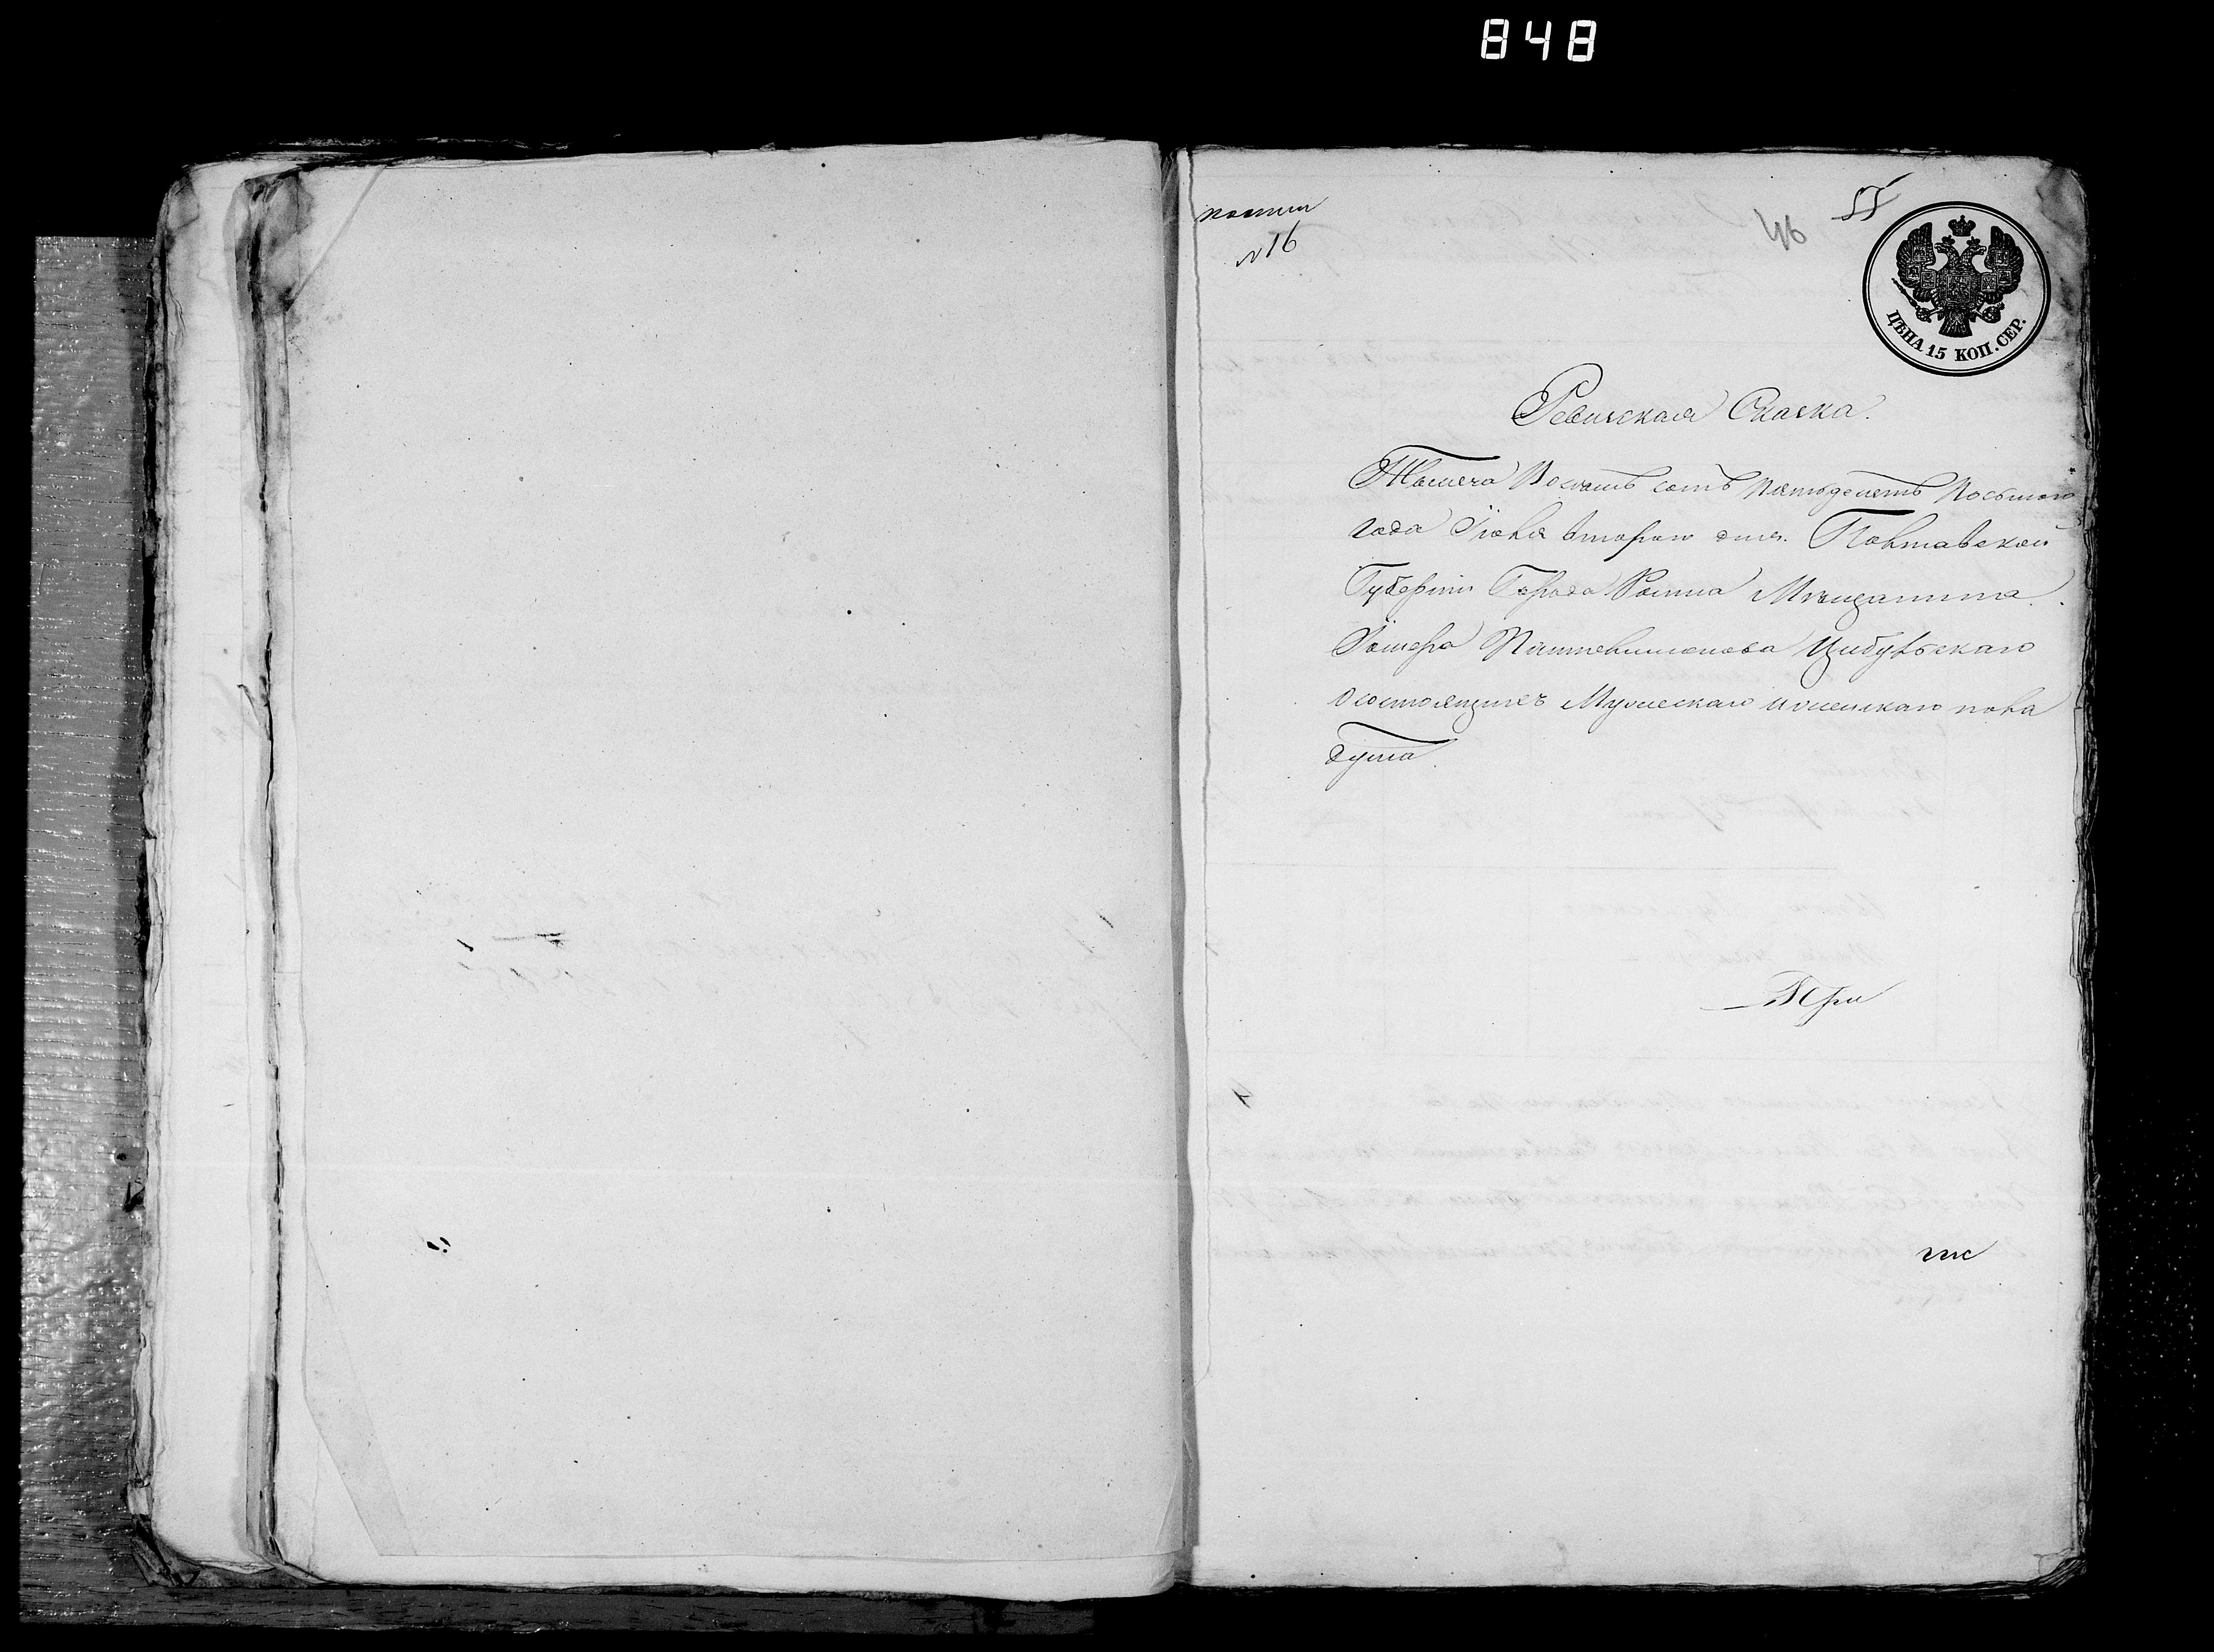 848
№ 16
46
55
ЦѢНА 15 КОП. СЕР.
Ревизская Сказка.
Тысеча Восемь сотъ Пятьдесятъ Восьмого
года Іюня второго дня. Полтавской
Губерніи Города Ромна Мѣщанина
Цибульскаго
о состоящихъ Мужескаго и женскаго пола
душа.